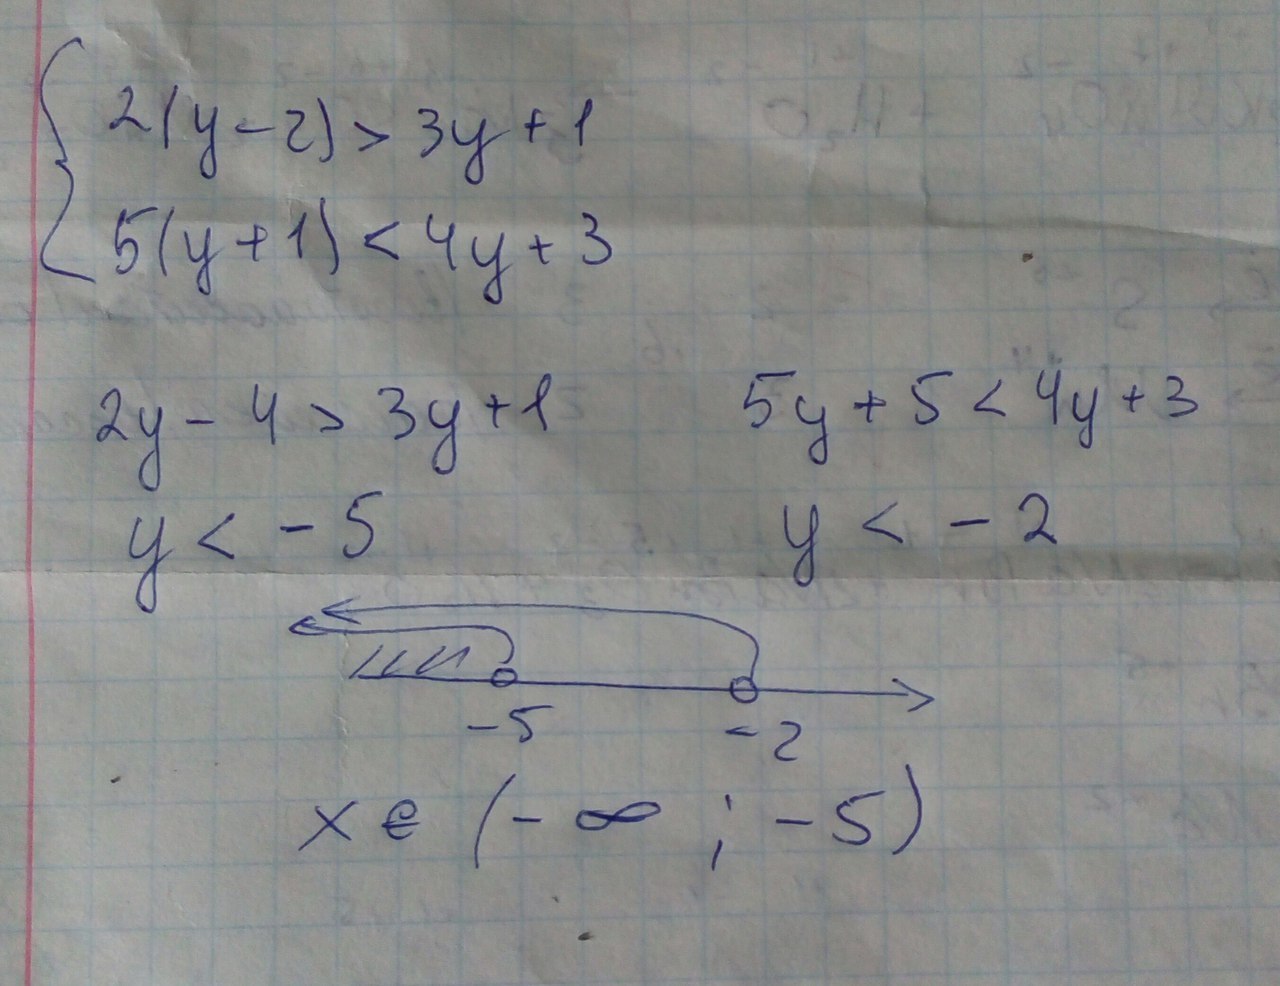 2(y-2)>3y+1
5(y+1)<4y+3
2y-4>3y+1 5y+5<4y+3
y<-5 y<-2
-5 -2
x∈(-∞;-5)